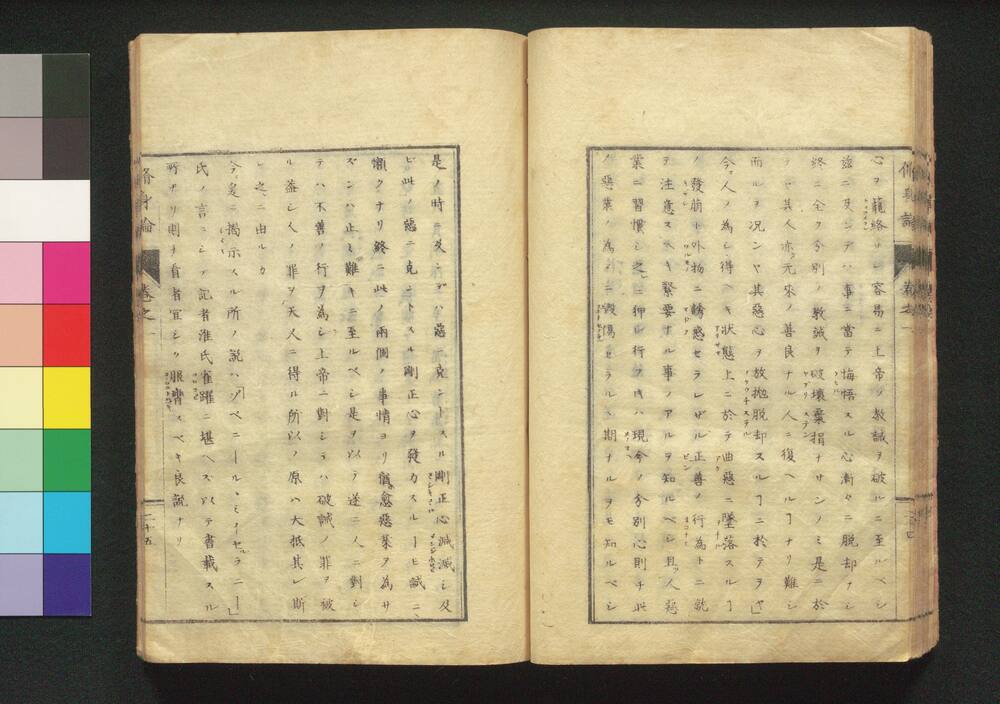 心ヲ籠絡サレ容易ニ上帝ノ教誡ヲ破ルニ至ルベシ
茲ニ及ンデハ事ニ當テ悔悟スル心漸々ニ脱却ナシ
終ニ全ク分別ノ教誡ヲ破壊棄捐ナサンノミ是ニ於
テハ其人亦元來ノ善良ナル人ニ復ヘルヿナリ難シ
而ルヲ況ンヤ其惡心ヲ放抛脱却スルヿニ於テヲヤ」
今人ノ為シ得ヘキ状態上ニ於テ曲惡ニ墜落スルヿ
ノ發萠ト外物ニ誘惑セラレザル正善ノ行為トニ就
テ注意スヘキ緊要ナル事ノアルヲ知ルベシ且人惡
業ニ習慣シ之ニ狎ル行フ時ハ現今ノ分別心則チ此
ノ惡業ノ為メニ毀傷セラルヽ期ナルヲモ知ルベシ
是ノ時ニ及ンデハ惡ニ克ントスル剛正心滅減シ及
ビ此ノ惡ニ克ントスル剛正心ヲ發力スルヿヒ誠ニ
嬾クナリ終ニ此ノ兩個ノ事情ヨリ愈惡業ヲ為サ
ズンハ止ミ難キニ至ルベシ是ヲ以テ遂ニ人ニ對シ
テハ不善ノ行ヲ為シ上帝ニ對シテハ破誡ノ罪ヲ被
ル蓋シ人ノ罪ヲ天人ニ得ル所以ノ原ハ大抵其レ斯
レ之ニ由ルカ
今爰ニ掲示スル所ノ説ハ「ゾベニールヽミイセルラニー」
氏ノ言ニシテ記者淮氏雀躍ニ堪ヘズ以テ書載スル
所ナリ則ヲ看者宜シク服膺スベキ良説ナリ
脩身論
卷之一
二十五